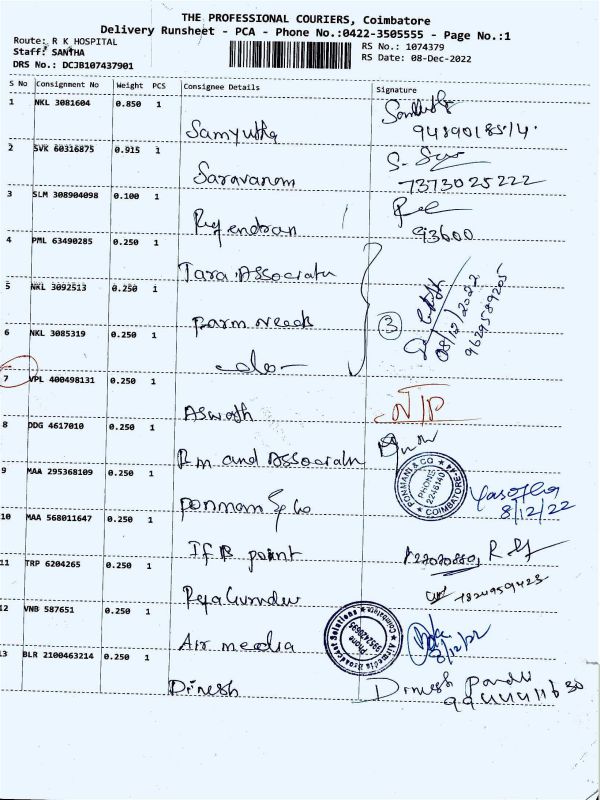 THE PROFESSIONAL COURIERS, Coimbatore
Delivery Runsheet - PCA - Phone No.:0422-3505555 - Page No.:1
Route: R K HOSPITAL
Staff: SANTHA
DRS No.: DCJB107437901
RS No.: 1074379
RS Date: 08-Dec-2022
S No Consignment No Weight PCS Consignee Details Signature
1 NKL 3081604 0.850 1
Samyuktha
2 SVK 60316875 0.915 1
Saravanam
7373025222
3 SLM 308904098 0.100 1
Rajendran
93600
4 PML 63490285 0.250 1
Tara Associatn
5 NKL 3092513 0.250 1
parm needs
3
08/12/2022
9629589205
6 NKL 3085319 0.250 1
-do-
7 VPL 400498131 0.250 1
Aswath
N/P
8 DDG 4617010 0.250 1
R.m and Associatn
9 MAA 295368109 0.250 1
ponmani & co
PONMANI & CO
PHONE
2246140
COIMBATORE-44
8/12/22
10 MAA 568011647 0.250 1
11 TRP 6204265 0.250 1
12 VNB 587651 0.250 1
Air media
Airmedia Broadcast Solutions
Phone
Coimbatore
8/12/22
13 BLR 2100463214 0.250 1
Dinesh
Dinesh